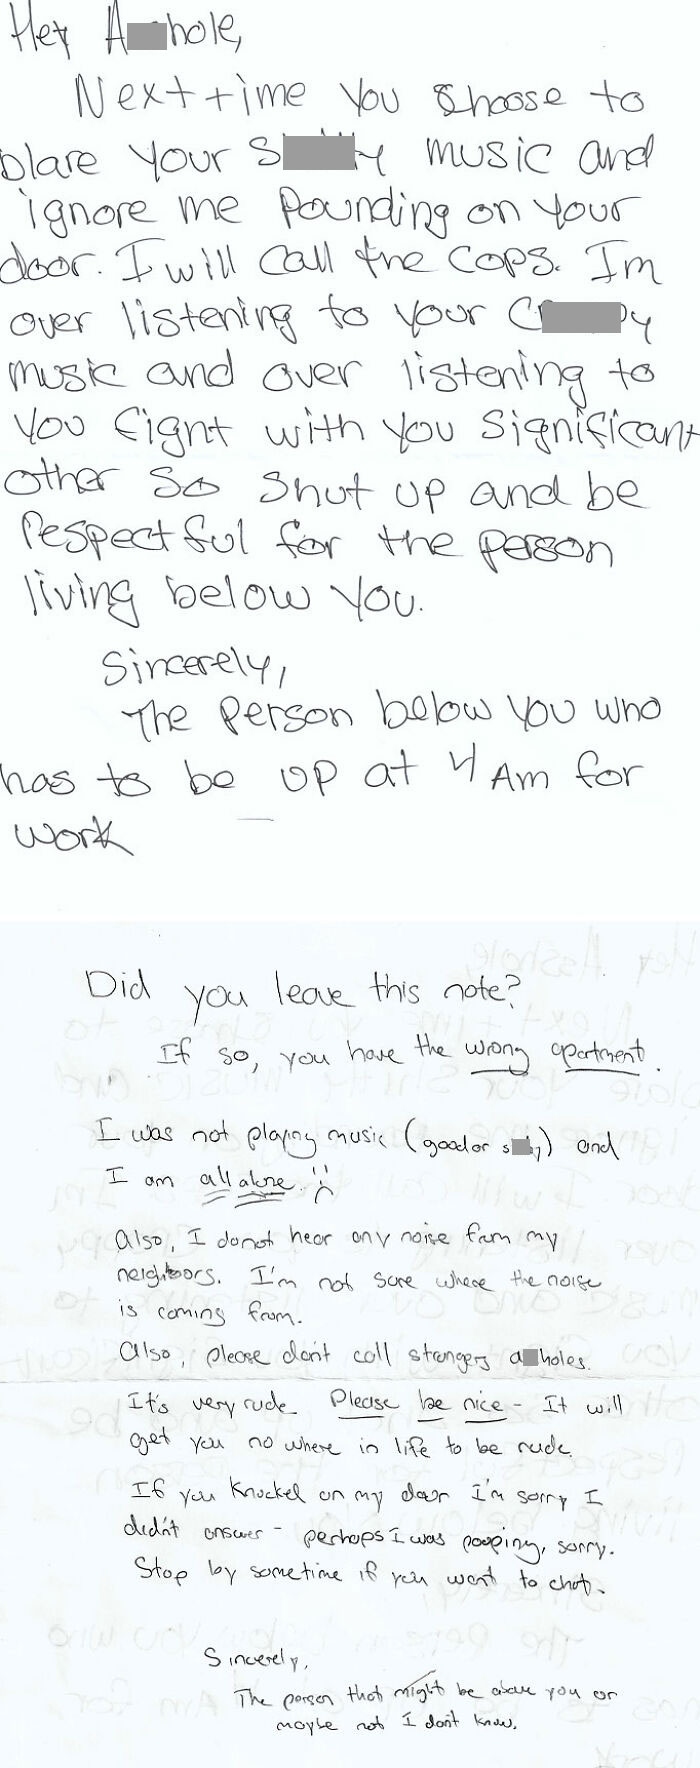 Hey A hole,
Next time you choose to
blare your S y music and
ignore me pounding on your
door. I will call the cops. Im
over listening to your C py
music and over listening to
you fight with you significant
other so shut up and be
respectful for the person
living below you.
Sincerely,
The person below you who
has to be up at 4 Am for
work
Did you leave this note?
If so, you have the wrong apartment.
I was not playing music (good or s y) and
I am all alone. :(
Also, I do not hear any noise from my
neighbors. I'm not sure where the noise
is coming from.
Also, please don't call strangers a holes.
It's very rude. Please be nice - It will
get you no where in life to be rude.
If you knocked on my door I'm sorry I
didn't answer - perhaps I was pooping, sorry.
Stop by sometime if you want to chat.
Sincerely,
The person that might be above you or
maybe not I don't know.